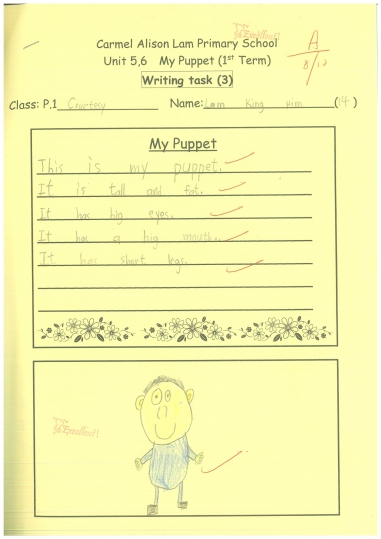 Excellent!
Carmel Alison Lam Primary School
A
Unit 5,6 My Puppet (1st Term)
8/12
Writing task (3)
Class: P.1 Courtesy Name: Lam King Him (14)
My Puppet
This is my puppet.
It is tall and fat.
It has big eyes.
It has a big mouth.
It has short legs.
Excellent!